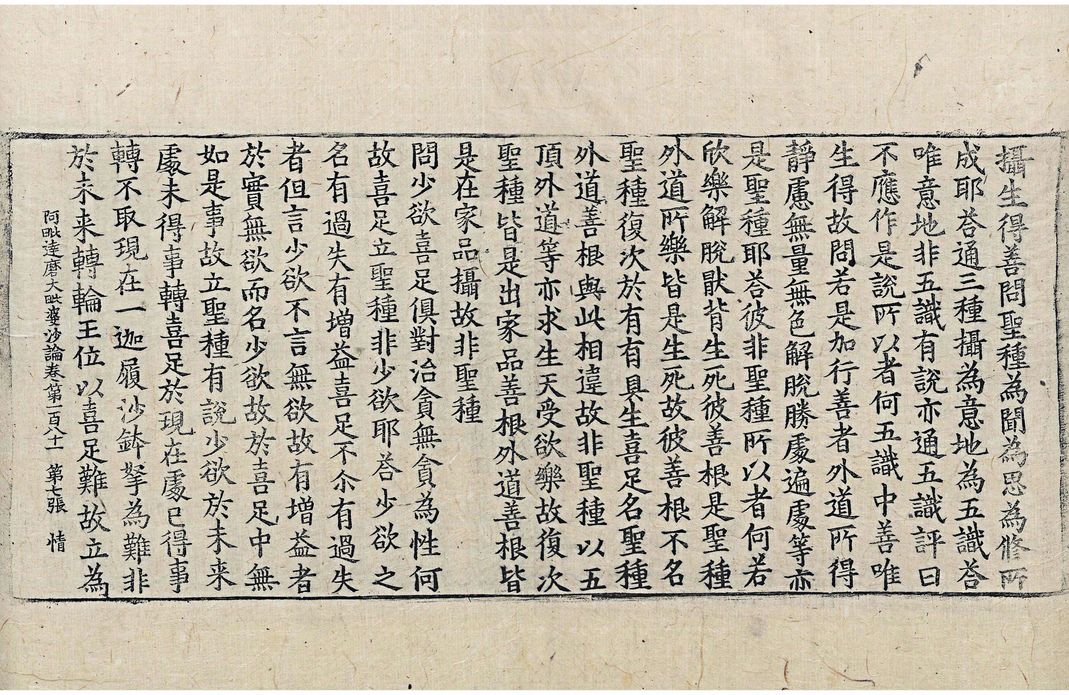 攝生得善問聖種為聞為思為修所
成耶荅通三種攝為意地為五識荅
唯意地非五識有說亦通五識評曰
不應作是說所以者何五識中善唯
生得故問若是加行善者外道所得
靜慮無量無色解脫勝處遍處等亦
是聖種耶荅彼非聖種所以者何若
欣樂解脫猒背生死彼善根是聖種
外道所樂皆是生死故彼善根不名
聖種復次於有有具生喜足名聖種
外道善根與此相違故非聖種以五
頂外道等亦求生天受欲樂故復次
聖種皆是出家品善根外道善根皆
是在家品攝故非聖種
問少欲喜足俱對治貪無貪為性何
故喜足立聖種非少欲耶荅少欲之
名有過失有增益喜足不尒有過失
者但言少欲不言無欲故有增益者
於實無欲而名少欲故於喜足中無
如是事故立聖種有說少欲於未來
處未得事轉喜足於現在處已得事
轉不取現在一迦履沙鉢拏為難非
於未來轉輪王位以喜足難故立為
阿毗達磨大毗婆沙論卷第一百八十一 第七張 情